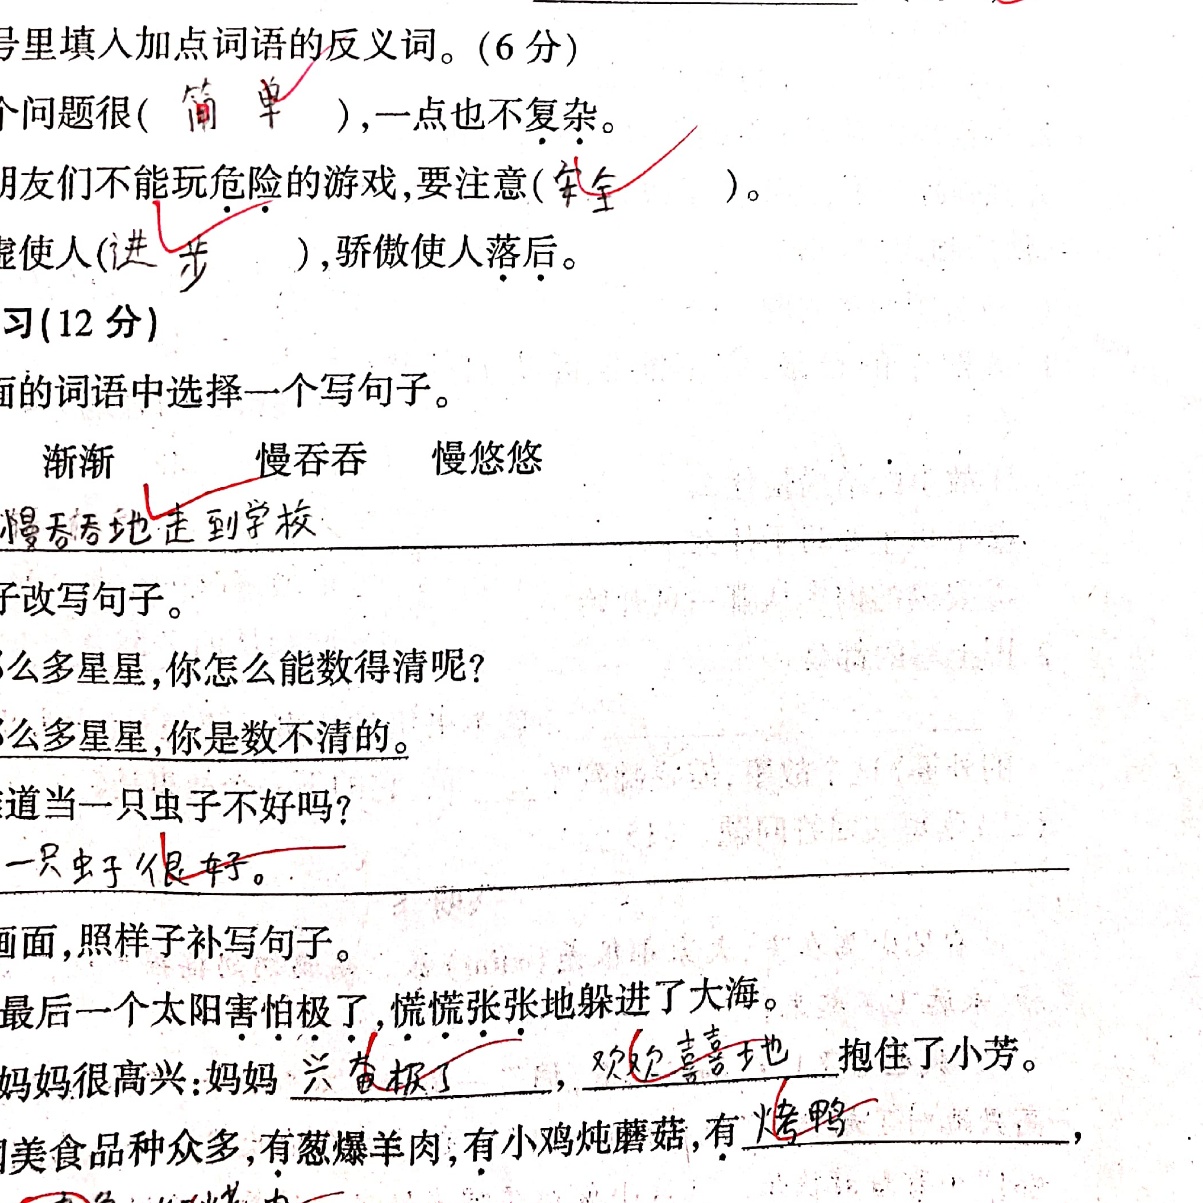 号里填入加点词语的反义词。(6 分)
个问题很( 简单 ),一点也不复杂。
朋友们不能玩危险的游戏,要注意( 安全 )。
虚使人( 进步 ),骄傲使人落后。
习(12 分)
面的词语中选择一个写句子。
渐渐 慢吞吞 慢悠悠
慢吞吞地走到学校
子改写句子。
那么多星星,你怎么能数得清呢?
那么多星星,你是数不清的。
难道当一只虫子不好吗?
一只虫子很好。
画面,照样子补写句子。
最后一个太阳害怕极了,慌慌张张地躲进了大海。
妈妈很高兴:妈妈 兴奋极了 , 欢欢喜喜地 抱住了小芳。
国美食品种众多,有葱爆羊肉,有小鸡炖蘑菇,有 烤鸭 ,